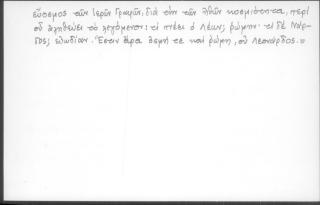 εὔοσμος τῶν ἱερῶν Γραφῶν, διὰ τὴν τῶν ἠθῶν κοσμιότητα, περὶ
οὗ ἀληθεύει τὸ λεγόμενον· τί πνέει ὁ Λέων; ῥώμην· τί δὲ Νάρ-
δος; εὐωδίαν. Ἔστιν ἄρα ὀσμή τε καὶ ῥώμη, ὁ Λεονάρδος.»